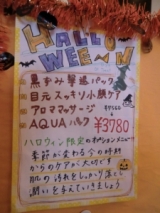 HALLO
WEEN
黒ずみ撃退パック
目元スッキリ小顔ケア
アロママッサージ
AQUAパック ¥3780
ハロウィン限定のオプションメニュー
季節が変わる今の時期
からのケアが大切です
肌の汚れをしっかり落とし
潤いを与えていきましょう